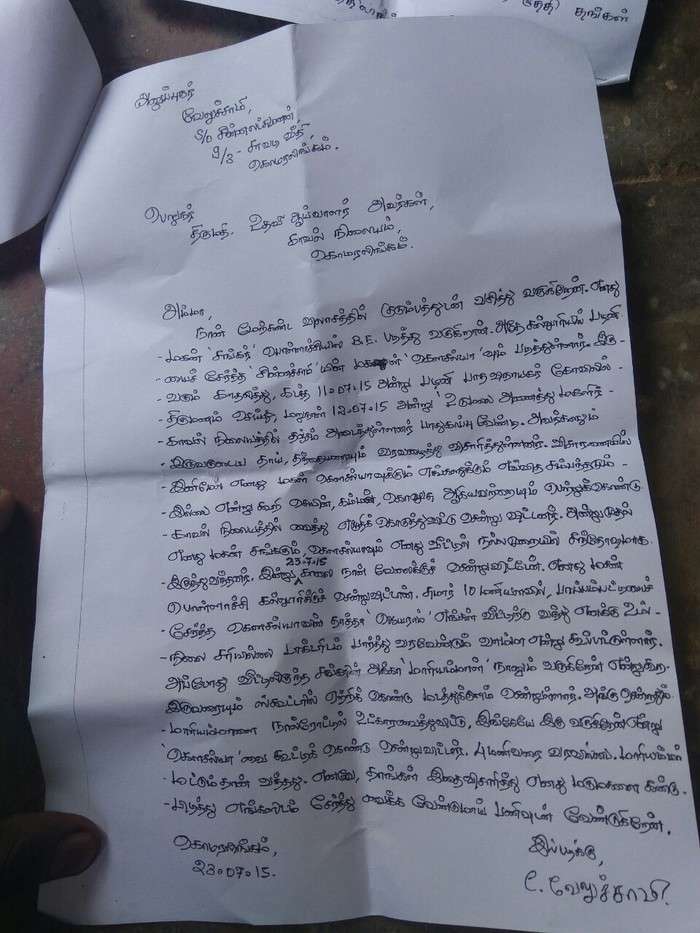 தங்கள்
அனுப்புநர்
வேலுச்சாமி,
S/o சின்னப்பிணன்,
9/3 - சாவடி வீதி,
கொமரலிங்கம்.
பெறுநர்
திருமதி. உதவி ஆய்வாளர் அவர்கள்,
காவல் நிலையம்,
கொமரலிங்கம்.
அம்மா,
நான் மேற்கண்ட விலாசத்தில் குடும்பத்துடன் வசித்து வருகிறேன். எனது
- மகன் 'சங்கர்' பொள்ளாச்சியில் B.E. படித்து வருகிறான். அதே கல்லூரியில் பழனி-
- யைச் சேர்ந்த 'சின்னச்சாமி'யின் மகள் 'கௌசல்யா'வும் படித்துள்ளார். இரு-
- வரும் காதலித்து, கடந்த 11-07-15 அன்று பழனி பாதவிநாயகர் கோவிலில் -
- திருமணம் செய்து, மறுநாள் 12-07-15 அன்று உடுமலை அனைத்து மகளிர் -
- காவல் நிலையத்தில் தஞ்சம் அடைந்துள்ளனர் பாதுகாப்பு வேண்டி. அவர்களும்
- இருவருடைய தாய், தந்தையரையும் வரவழைத்து விசாரித்துள்ளனர். விசாரணையில்
- இனிமேல் எனது மகள் கௌசல்யாவுக்கும் எங்களுக்கும் எவ்வித சம்பந்தமும் -
- இல்லை என்று கூறி செயின், கம்மல், கொலுசு ஆகியவற்றையும் பெற்றுக்கொண்டு
- காவல் நிலையத்தில் வைத்து எழுதிக் கொடுத்துவிட்டு சென்று விட்டனர். அன்று முதல்
எனது மகன் சங்கரும், கௌசல்யாவும் எனது வீட்டில் நல்லமுறையில் சந்தோஷமாக
- இருந்து வந்தனர். இன்று 23-7-15 காலை நான் வேலைக்குச் சென்றுவிட்டேன். எனது மகன்
பொள்ளாச்சி கல்லூரிக்குச் சென்றுவிட்டான். சுமார் 10 மணியளவில்,
- சேர்ந்த கௌசல்யாவின் தாத்தா 'ஜெயராம்' எங்கள் வீட்டிற்கு வந்து எனக்கு உடல்-
- நிலை சரியில்லை டாக்டரிடம் பார்த்து வரவேண்டும் வாம்மா என்று கூப்பிட்டுள்ளார்.
அப்போது வீட்டிலிருந்த சங்கரின் அக்கா 'மாரியம்மாள்' நானும் வருகிறேன் என்று கூற
இருவரையும் ஸ்கூட்டரில் ஏற்றிக் கொண்டு மடத்துக்குளம் சென்றுள்ளார். அங்கு சென்றதும்
- மாரியம்மாளை நால்ரோட்டில் உட்காரவைத்துவிட்டு, இங்கேயே இரு வருகிறேன் என்று
'கௌசல்யா'வை கூட்டிக் கொண்டு சென்றுவிட்டார். 4 மணிவரை வரவில்லை. மாரியம்மாள்
- மட்டும்தான் வந்தது. எனவே, தாங்கள் இதை விசாரித்து எனது மருமகளை கண்டு-
- பிடித்து எங்களிடம் சேர்த்து வைக்க வேண்டுமாய் பணிவுடன் வேண்டுகிறேன்.
கொமரலிங்கம்,
23-07-15.
இப்படிக்கு,
C. வேலுச்சாமி.